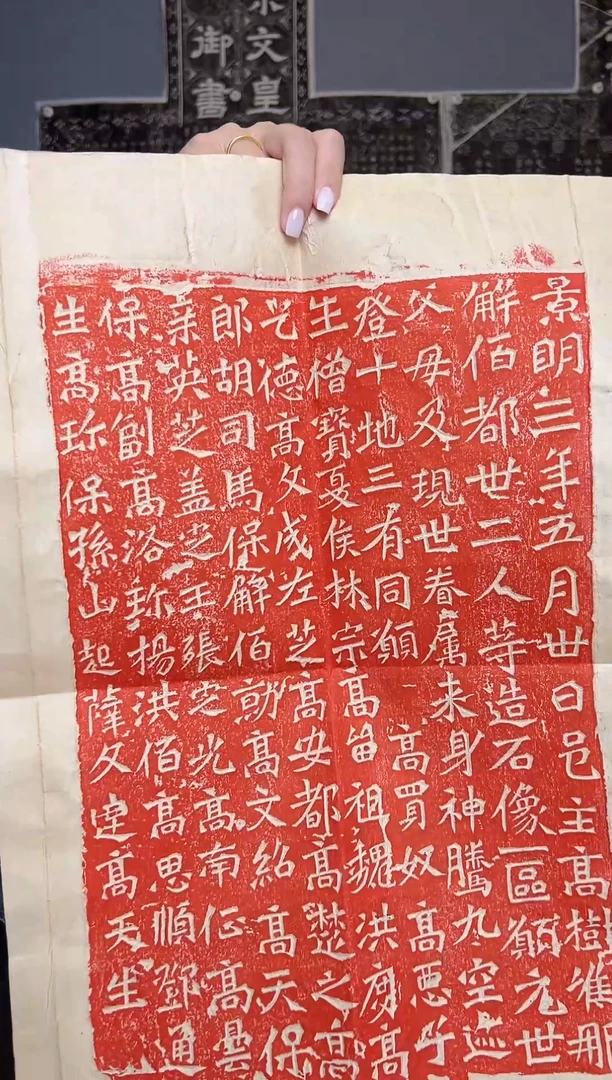 文皇
御書
景明三年五月卅日邑主高樹維那
解佰都卅二人等造石像一區願元世
父母及現世眷屬来身神騰九空迹
登十地三有同願高買奴高悪子
生僧寶夏侯林宗高留祖魏洪度高
乞德高文成左芝高安都高楚之高
郎胡司馬保解佰勍高文紹高天保
英芝盖定王張定光高南征高曇
保高創高洛珎楊洪佰高思順鄧通
生高珎保孫山起薛文達高天生